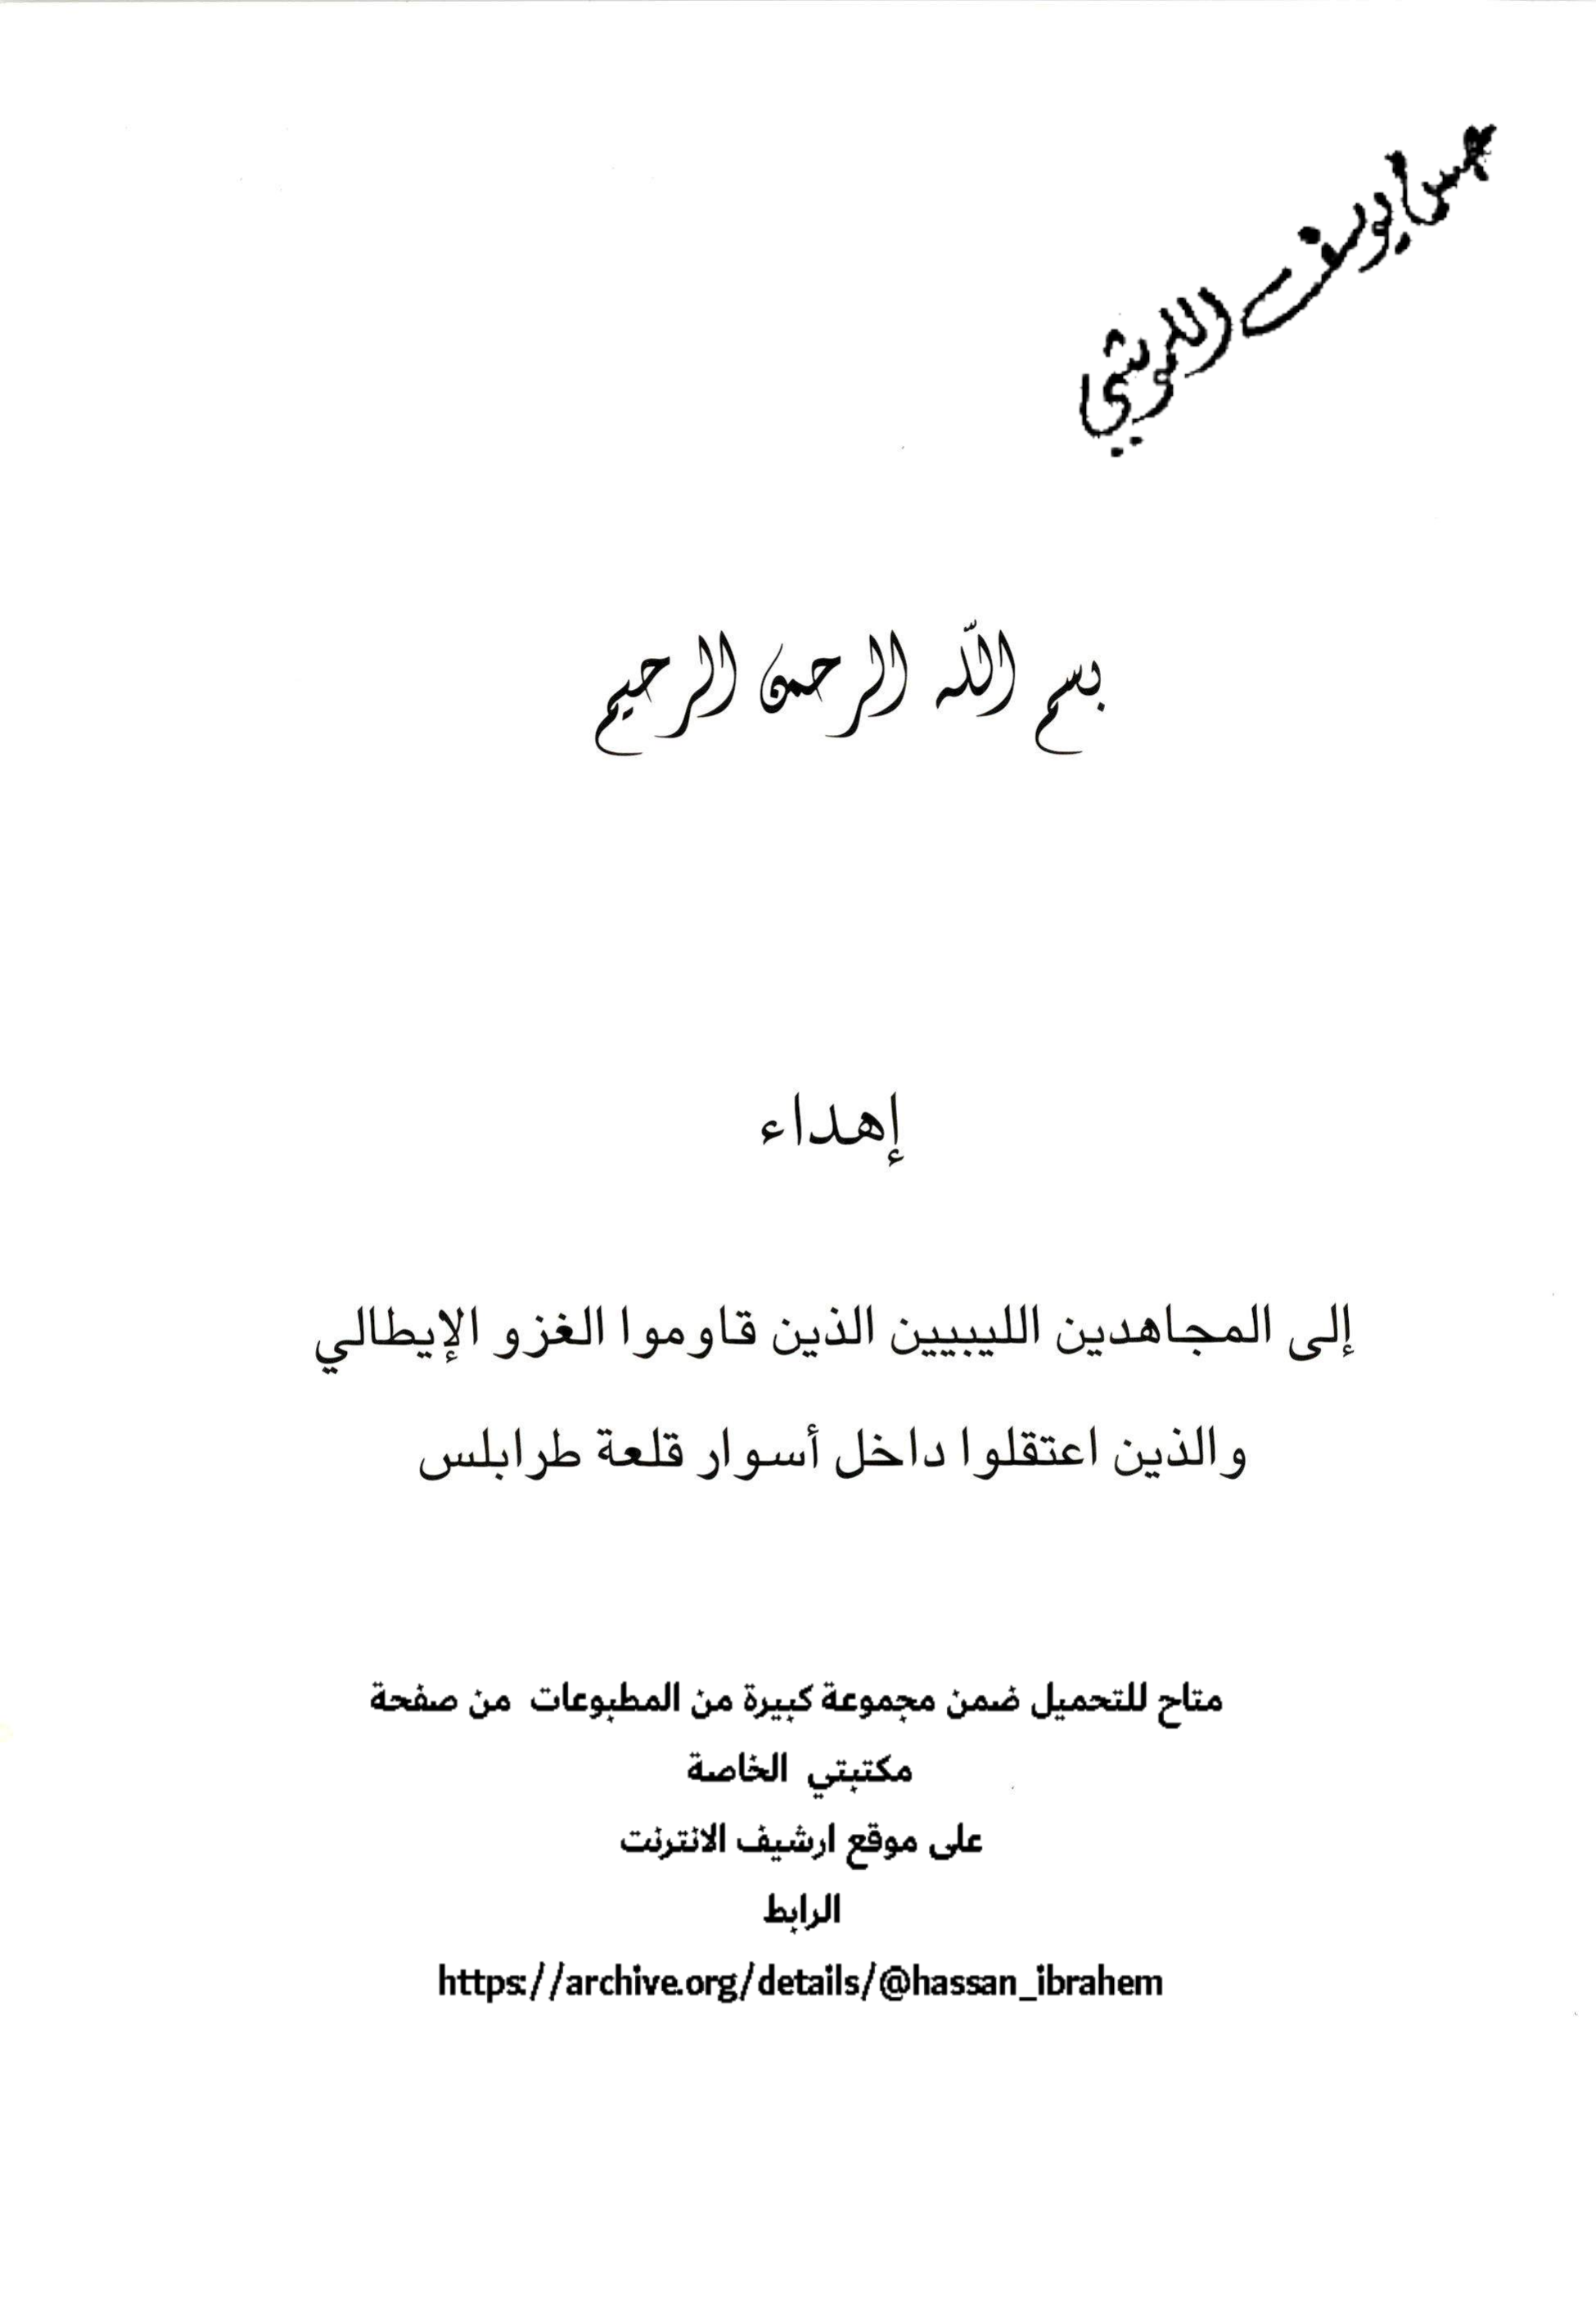 حسن يوسف اللويشي
بسم اللّه الرحمن الرحيم
إهداء
إلى المجاهدين الليبيين الذين قاوموا الغزو الإيطالي
والذين اعتقلوا داخل أسوار قلعة طرابلس
متاح للتحميل ضمن مجموعة كبيرة من المطبوعات من صفحة
مكتبتي الخاصة
على موقع ارشيف الانترنت
الرابط
https://archive.org/details/@hassan_ibrahem